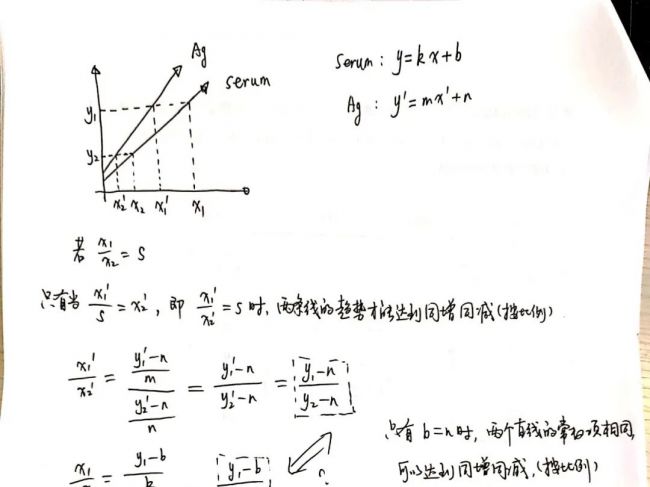 Ag
serum
y₁
y₂
x₂' x₂ x₁' x₁
serum: y=kx+b
Ag: y'=mx'+n
若 x₁/x₂ = S
只有当 x₁'/S = x₂', 即 x₁'/x₂' = S 时, 两条线的趋势才能达到同增同减(按比例)
x₁'/x₂' = ((y₁'-n)/m)/((y₂'-n)/n) = (y₁'-n)/(y₂'-n) = (y₁-n)/(y₂-n)
只有 b=n时, 两个直线的常数项相同,
可以达到同增同减,(按比例)
x₁ y₁-b y₁-b ?